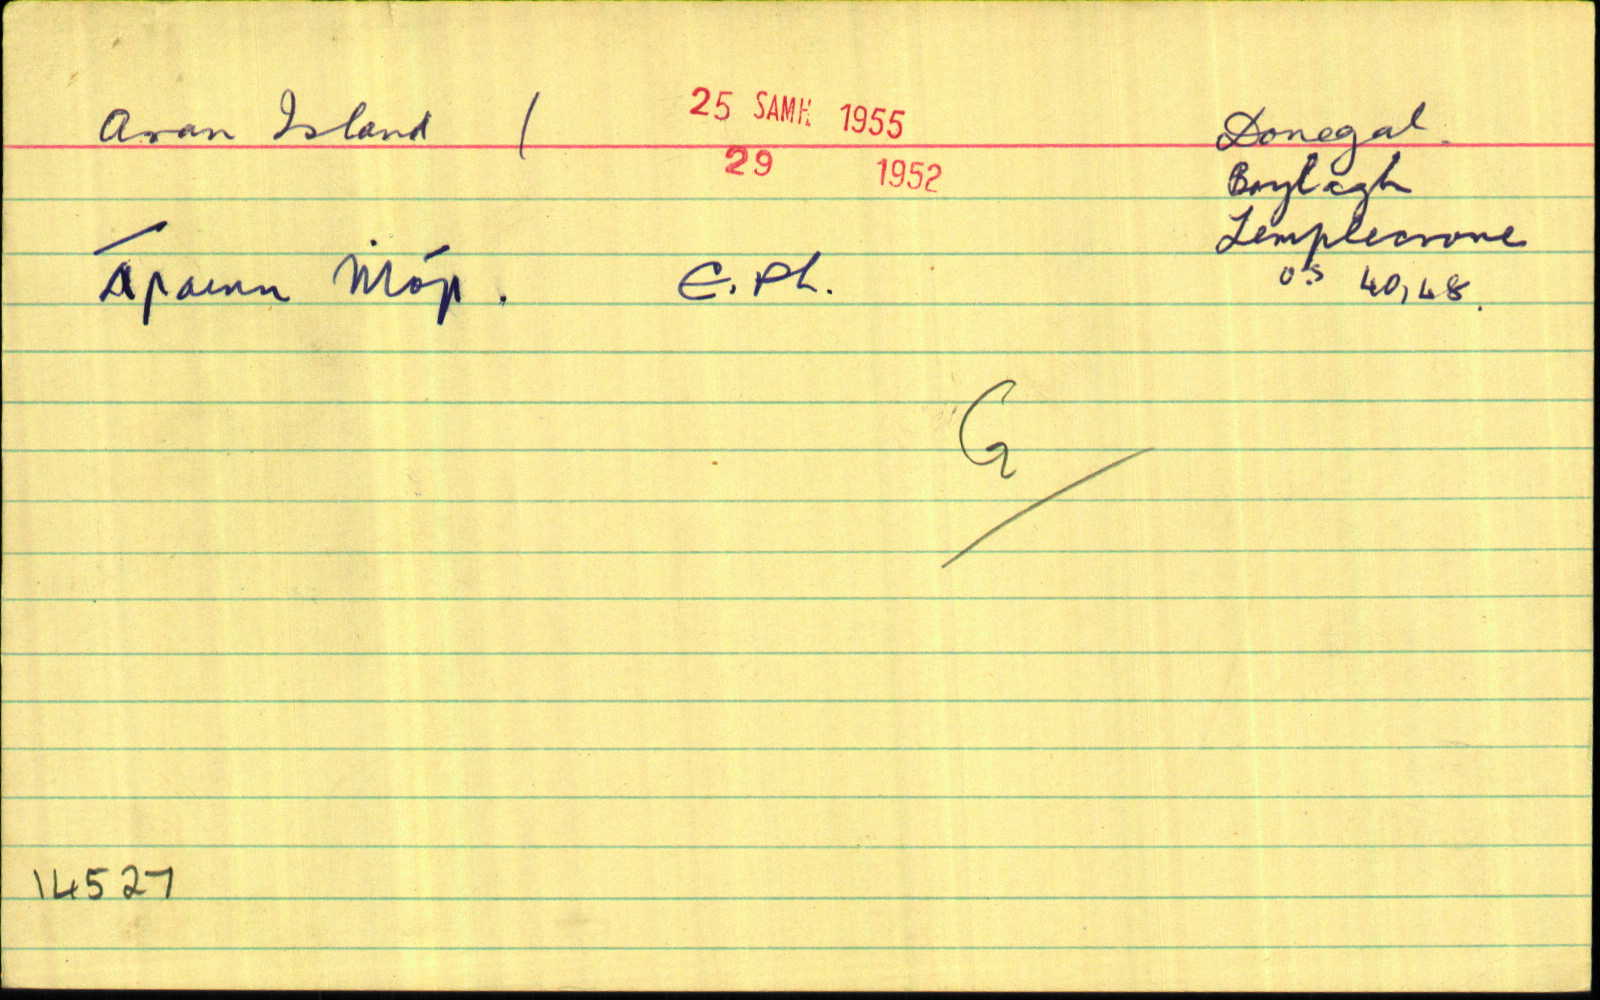 Aran Island / 25 SAMH 1955 Donegal.
29 1952 Boylagh
Templecrone
Árainn Ṁór. E. Ph. OS 40, 48.
G
14527